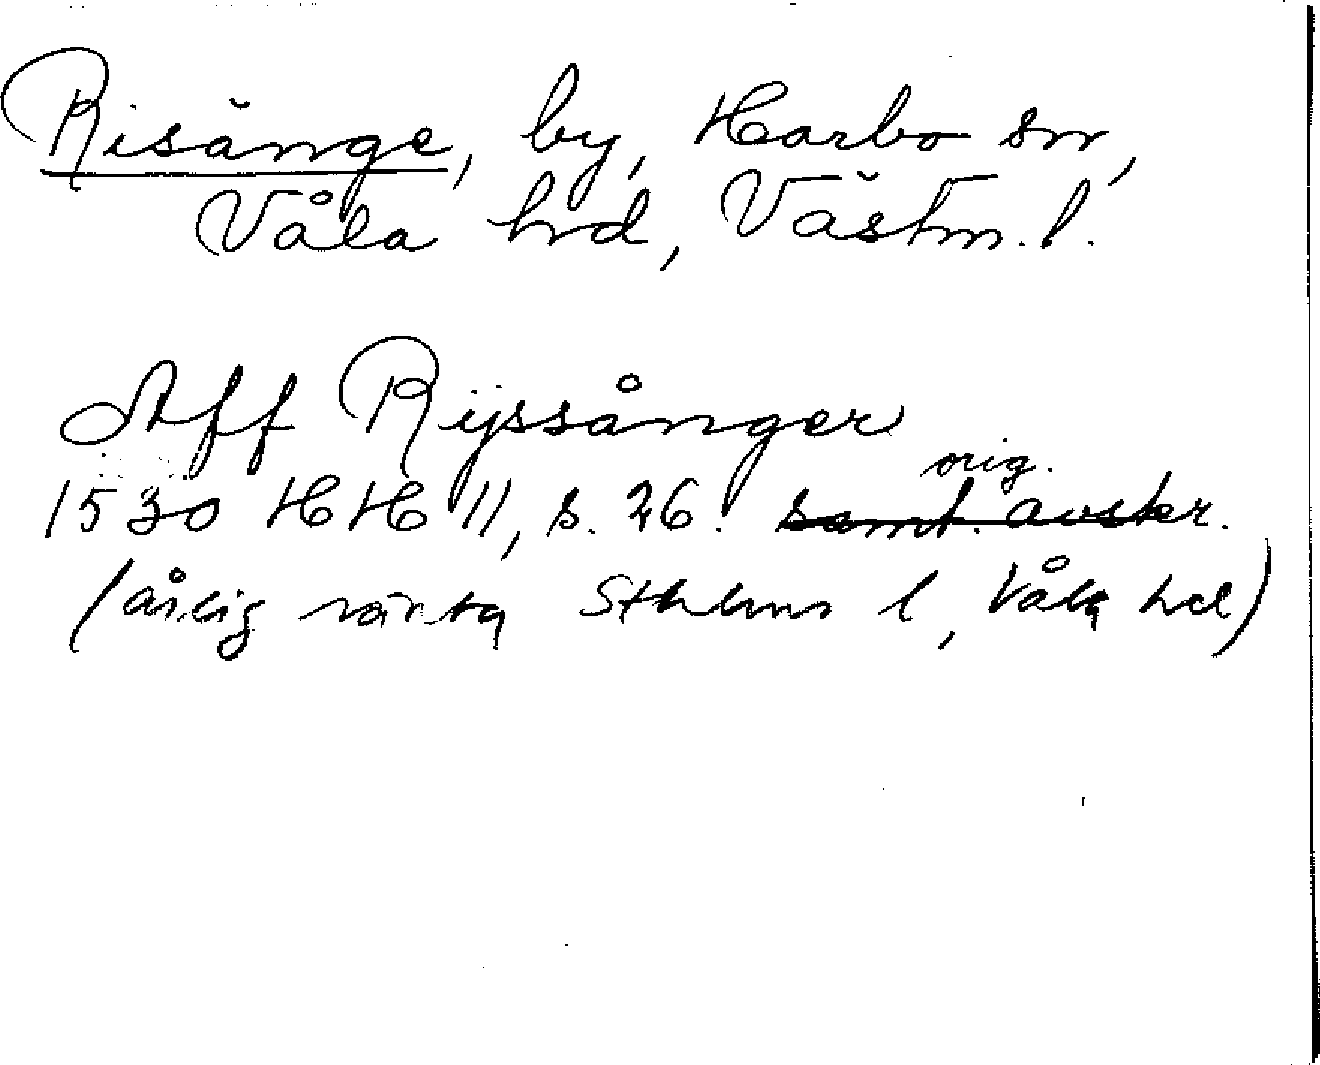 Risänge, by, Harbo sn,
Våla hd, Västm. l.
Aff Rijssånger
orig.
1530 HH 11, s. 26. samt. avskr.
(årlig ränta Sthlms l, Våla hd)